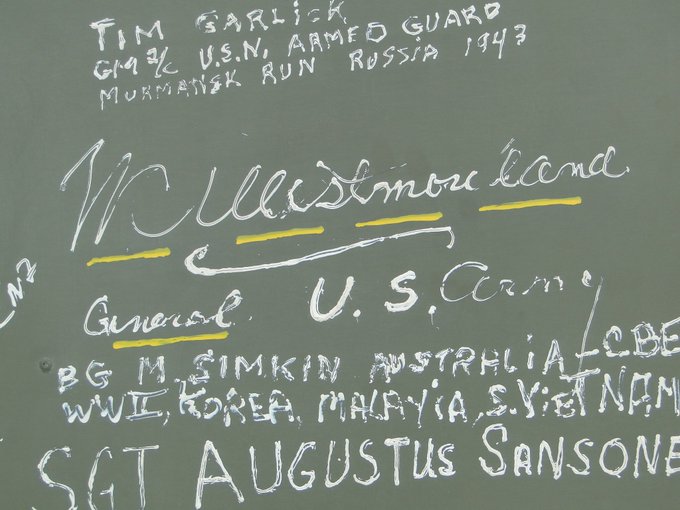 TIM GARLICK
GM 2/C U.S.N. ARMED GUARD
MURMANSK RUN RUSSIA 1943
W C Westmoreland
General U.S. Army
BG M. SIMKIN AUSTRALIA - CBE
WWII, KOREA, MALAYIA, S. VIETNAM
SGT AUGUSTUS SANSONE